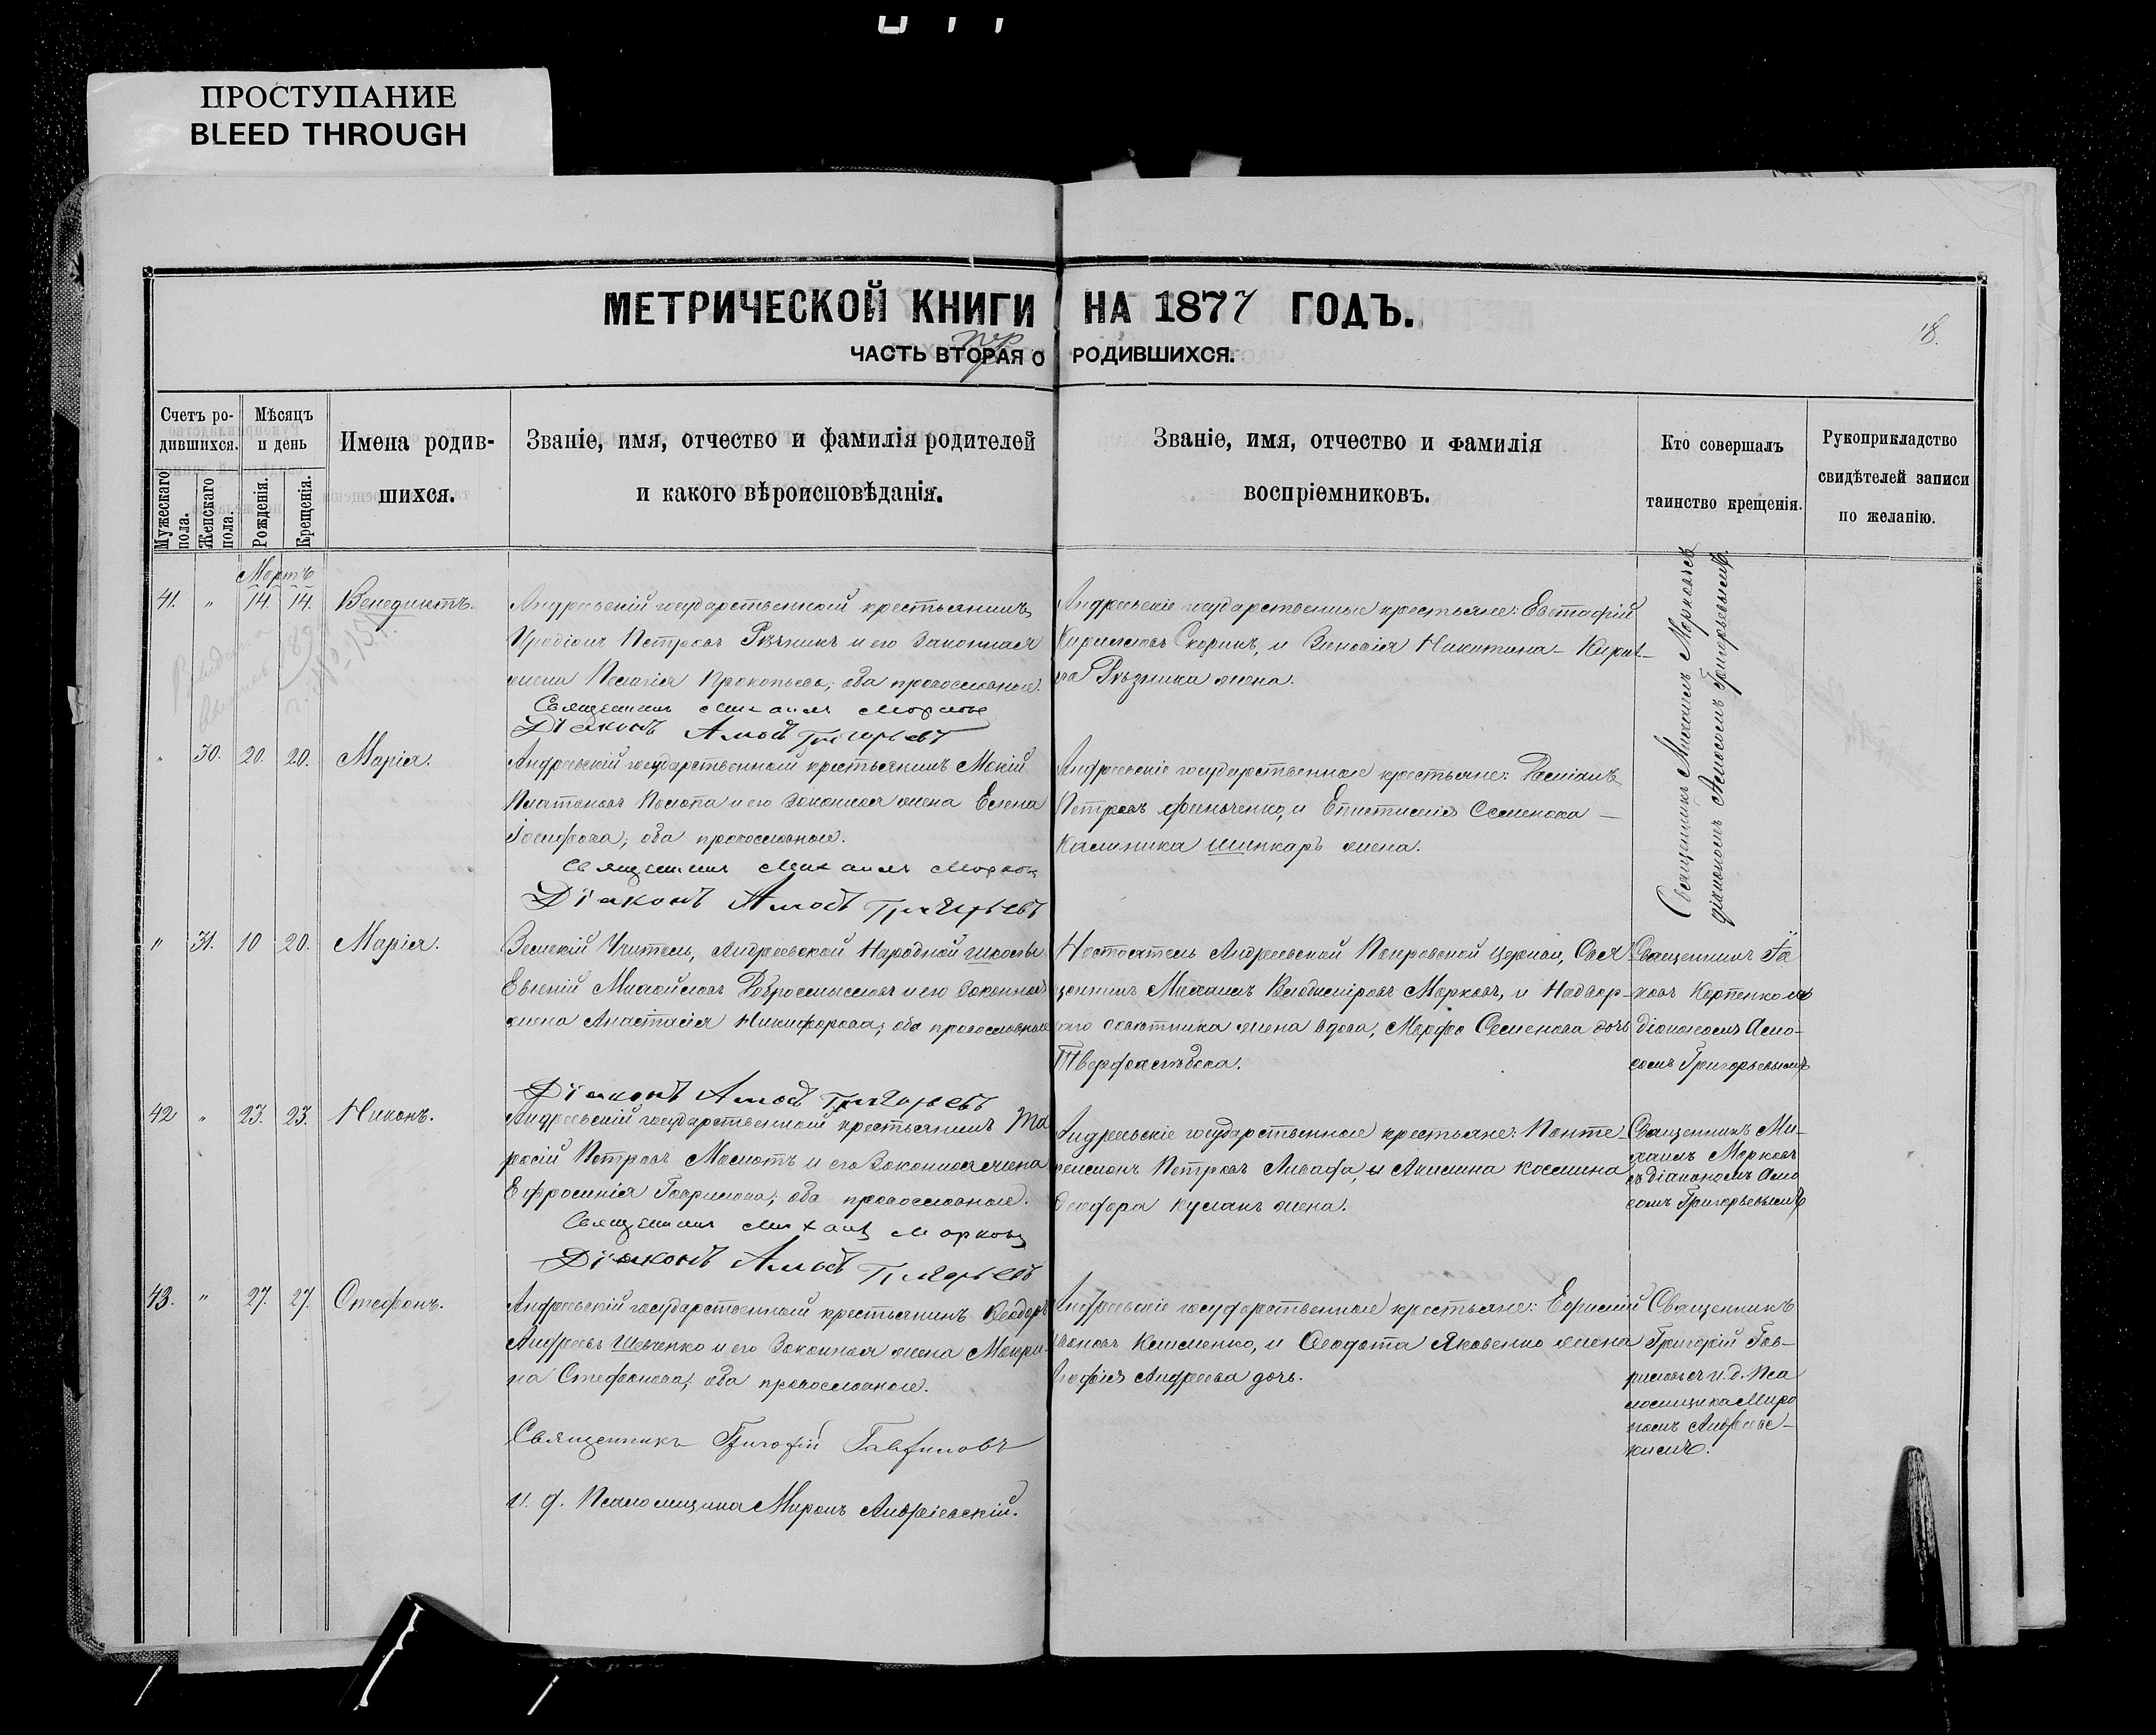 ПРОСТУПАНИЕ
BLEED THROUGH
МЕТРИЧЕСКОЙ КНИГИ НА 1877 ГОДЪ.
18.
ЧАСТЬ ВТОРАЯ О РОДИВШИХСЯ.
Счетъ ро-
дившихся.
Мужескаго пола.
Женскаго пола.
Мѣсяцъ
и день
Рожденія.
Крещенія.
Имена родив-
шихся.
Званіе, имя, отчество и фамилія родителей
и какого вѣроисповѣданія.
Званіе, имя, отчество и фамилія
воспріемниковъ.
Кто совершалъ
таинство крещенія.
Рукоприкладство
свидѣтелей записи
по желанію.
Мартъ
41. " 14. 14. Венедиктъ.
Андреевскій государственный крестьянинъ
Иродіонъ Петровъ Рѣзникъ и его законная
жена Пелагія Прокопьева; оба православные.
Священникъ Михаилъ Марковъ
Діаконъ Амосъ Григорьевъ
Андреевскіе государственные крестьяне: Евстафій
Кириловъ Скорикъ, и Зиновія Никитина - Кирил-
ла Рѣзника жена.
Священникъ Михаилъ Марковъ съ
діакономъ Амосомъ Григорьевымъ.
" 30. 20. 20. Марія.
Андреевскій государственный крестьянинъ Мокій
Платоновъ и его законная жена Елена
Іосифова; оба православные.
Священникъ Михаилъ Марковъ
Діаконъ Амосъ Григорьевъ
Андреевскіе государственные крестьяне: Даміанъ
Петровъ и Епистимія Семенова -
Калиника Шинкаръ жена.
" 31. 10 20. Марія.
Земскій Учитель, Андреевской Народной школы
Евгеній Михайловъ Добросмысловъ и его законная
жена Анастасія Никифорова; оба православные
Діаконъ Амосъ Григорьевъ
Настоятель Андреевской Покровской церкви, Свя-
щенникъ Михаилъ Владиміровъ Марковъ, и Надвор-
наго совѣтника жена вдова, Марфа Семенова дочь
Священникъ Іа-
ковъ съ
діакономъ Амо-
сомъ Григорьевымъ
42 " 23. 23. Никонъ.
Андреевскій государственный крестьянинъ Та-
расій Петровъ и его законная жена
Ефросинія Гаврилова; оба православные.
Священникъ Михаилъ Марковъ
Діаконъ Амосъ Григорьевъ
Андреевскіе государственные крестьяне: Панте-
леимонъ Петровъ и Акилина Космина
Феодора жена.
Священникъ Ми-
хаилъ Марковъ
съ діакономъ Амо-
сомъ Григорьевымъ
43. " 27. 27. Стефанъ.
Андреевскій государственный крестьянинъ Феодоръ
Андреевъ Шевченко и его законная жена Макри-
на Стефанова; оба православные.
Священникъ Григорій Гавриловъ
и. д. Псаломщика Миронъ Андріевскій.
Андреевскіе государственные крестьяне: Ефимій
Ивановъ Клименко, и Феодота Яковенко жена
Софія Андреева дочь.
Священникъ
Григорій Гав-
риловъ съ и. д. Пса-
ломщика Миро-
номъ Андріевс-
кимъ.